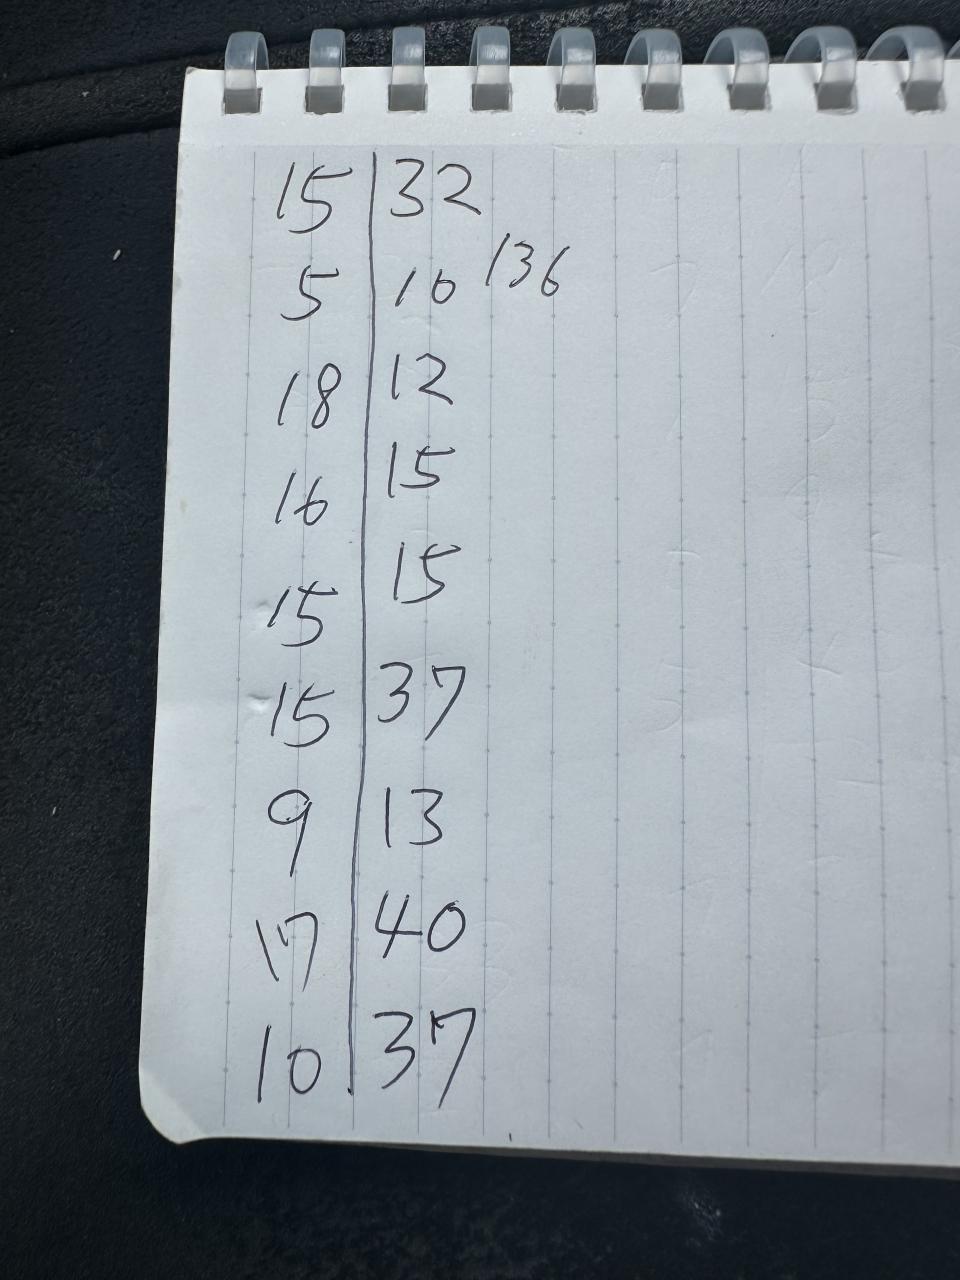 15 32
5 10 136
18 12
16 15
15 15
15 37
9 13
17 40
10 37